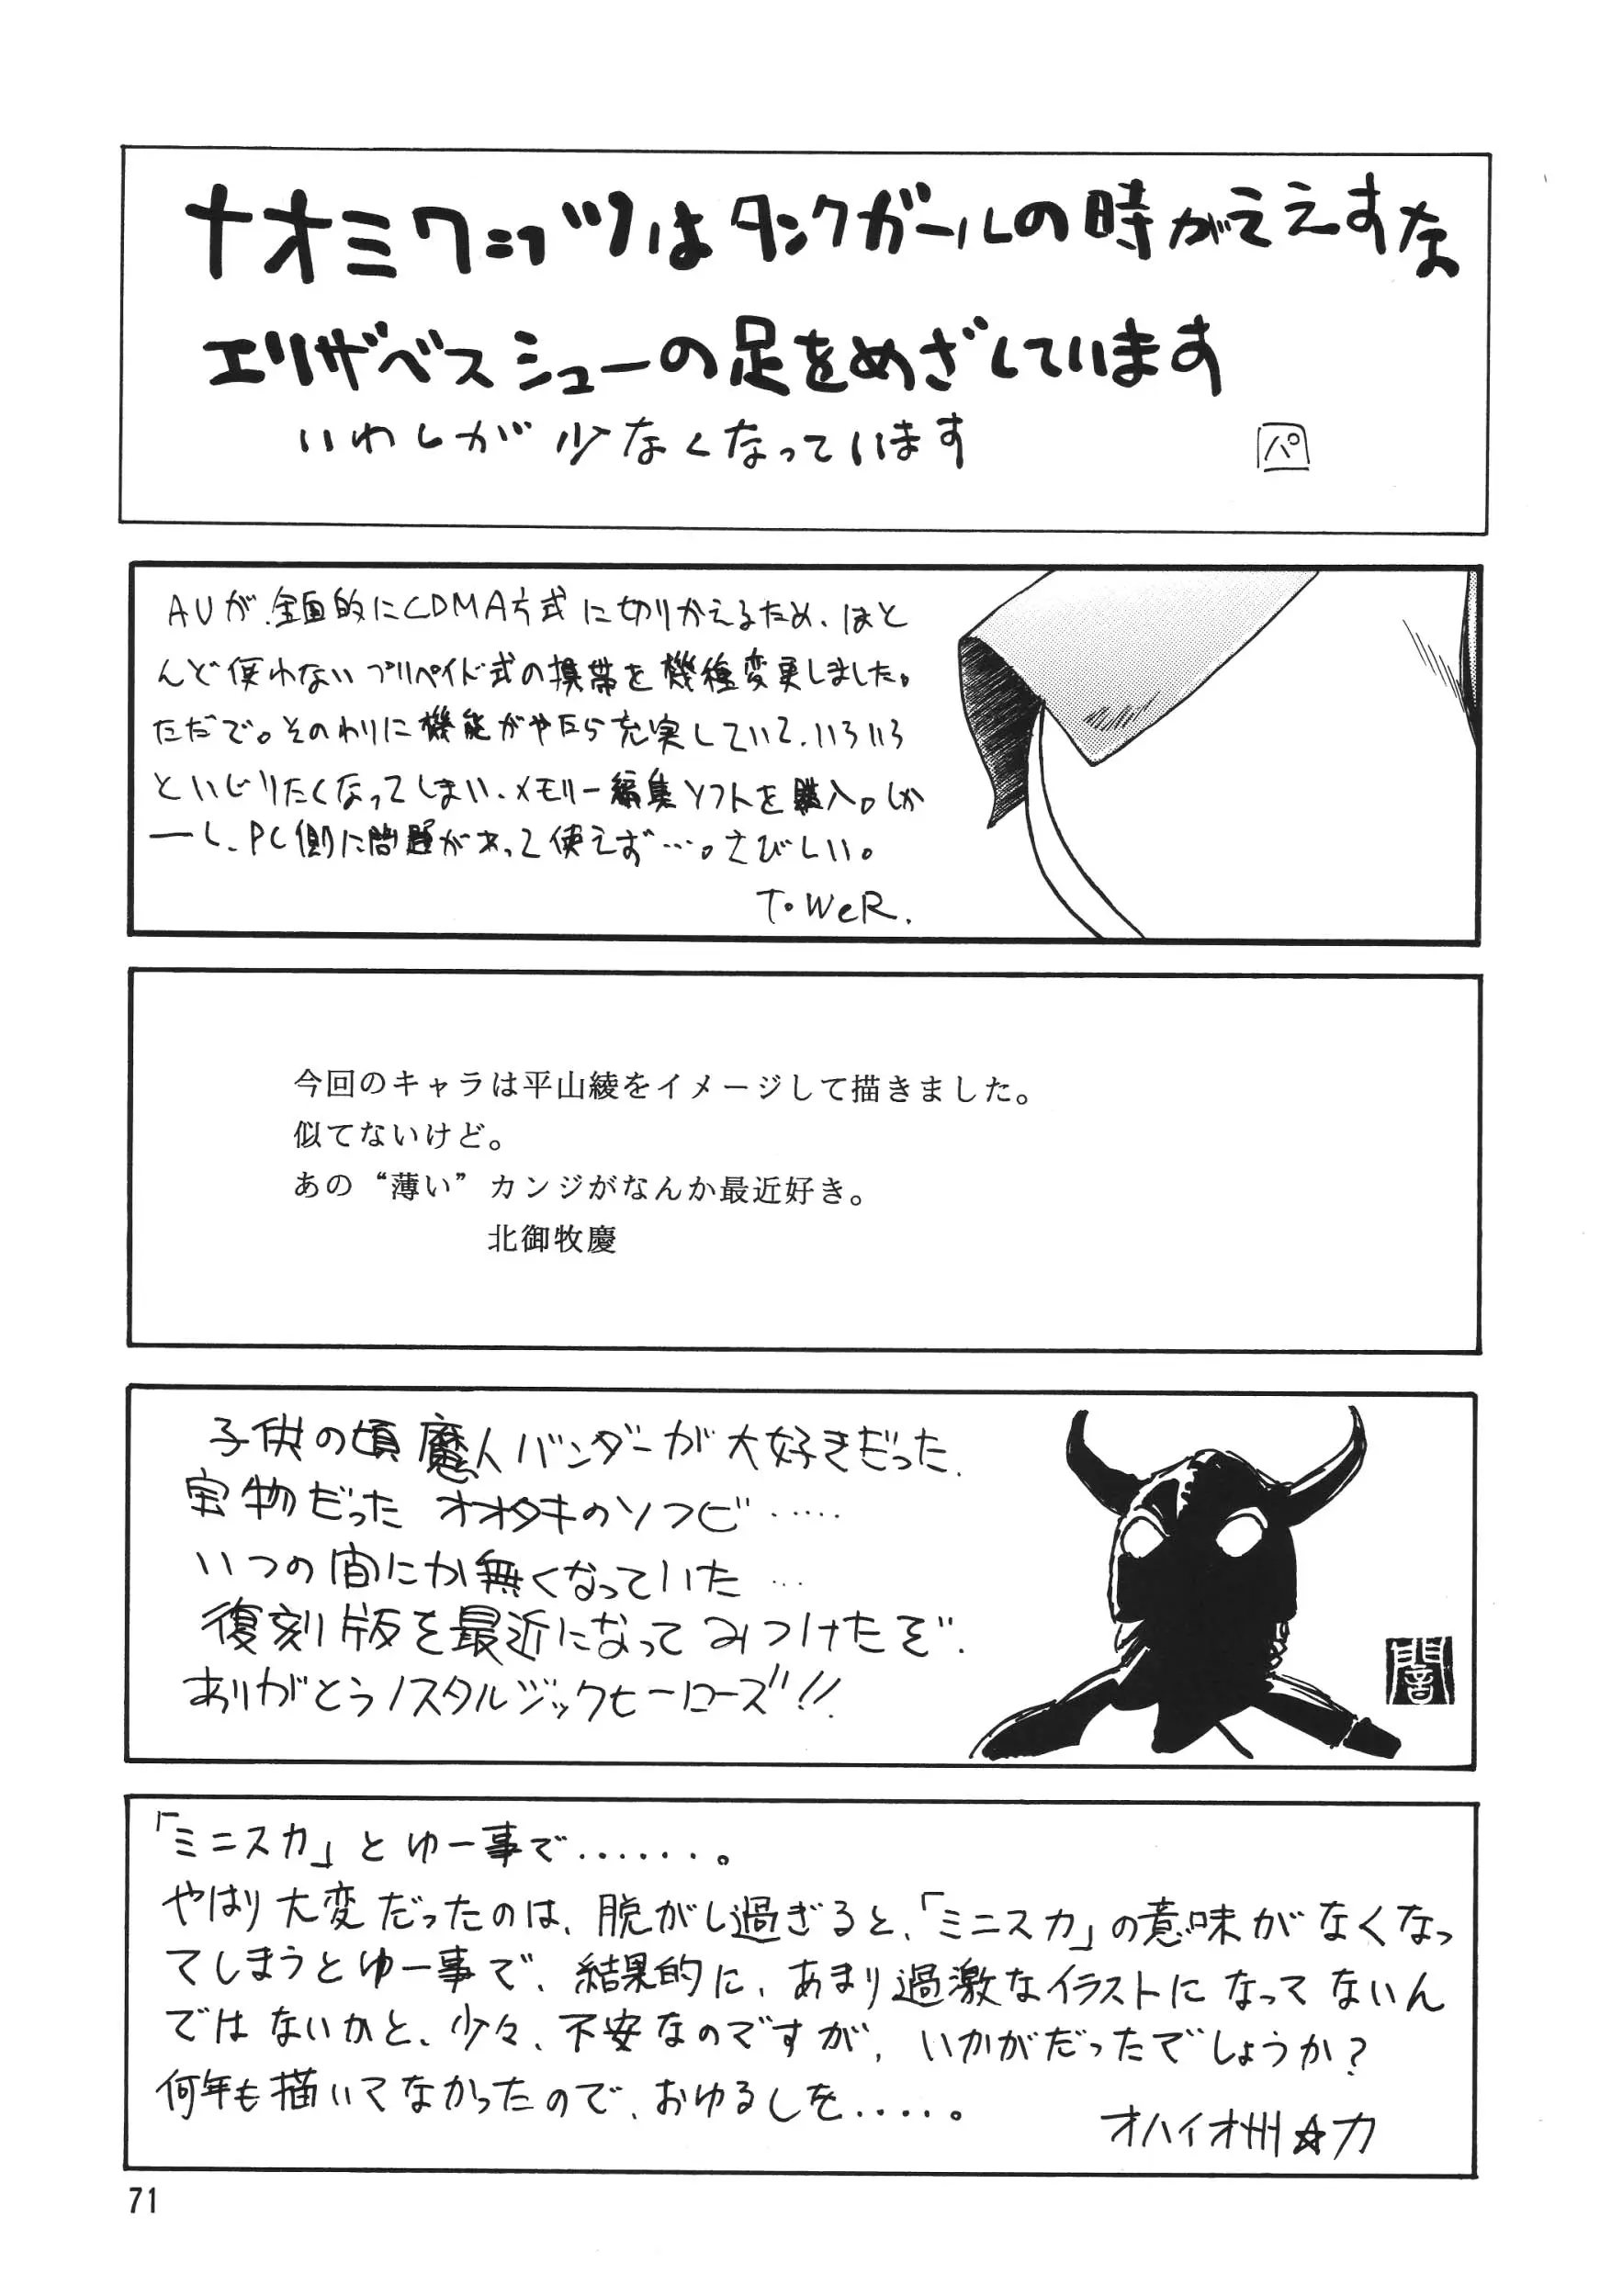 ナオミワッツはタンクガールの時がええすな
エリザベスシューの足をめざしています
いわしが少なくなっています
パ
AUが、全面的にCDMA方式に切りかえるため、ほと
んど使わないプリペイド式の携帯を機種変更しました。
ただで。そのわりに機能がやたら充実していて、いろいろ
といじりたくなってしまい、メモリー編集ソフトを購入。しか
ーし、PC側に問題があって使えず…。さびしい。
ToWeR.
今回のキャラは平山綾をイメージして描きました。
似てないけど。
あの“薄い”カンジがなんか最近好き。
北御牧慶
子供の頃魔人バンダーが大好きだった、
宝物だったオオタキのソフビ‥‥‥
いつの間にか無くなっていた…
復刻版を最近になってみつけたぞ、
ありがとうノスタルジックヒーローズ!!
闇
「ミニスカ」とゆー事で.......。
やはり大変だったのは、脱がし過ぎると、「ミニスカ」の意味がなくなっ
てしまうとゆー事で、結果的に、あまり過激なイラストになってないん
ではないかと、少々、不安なのですが、いかがだったでしょうか?
何年も描いてなかったので、おゆるしを.....。
オハイオ州☆力
71